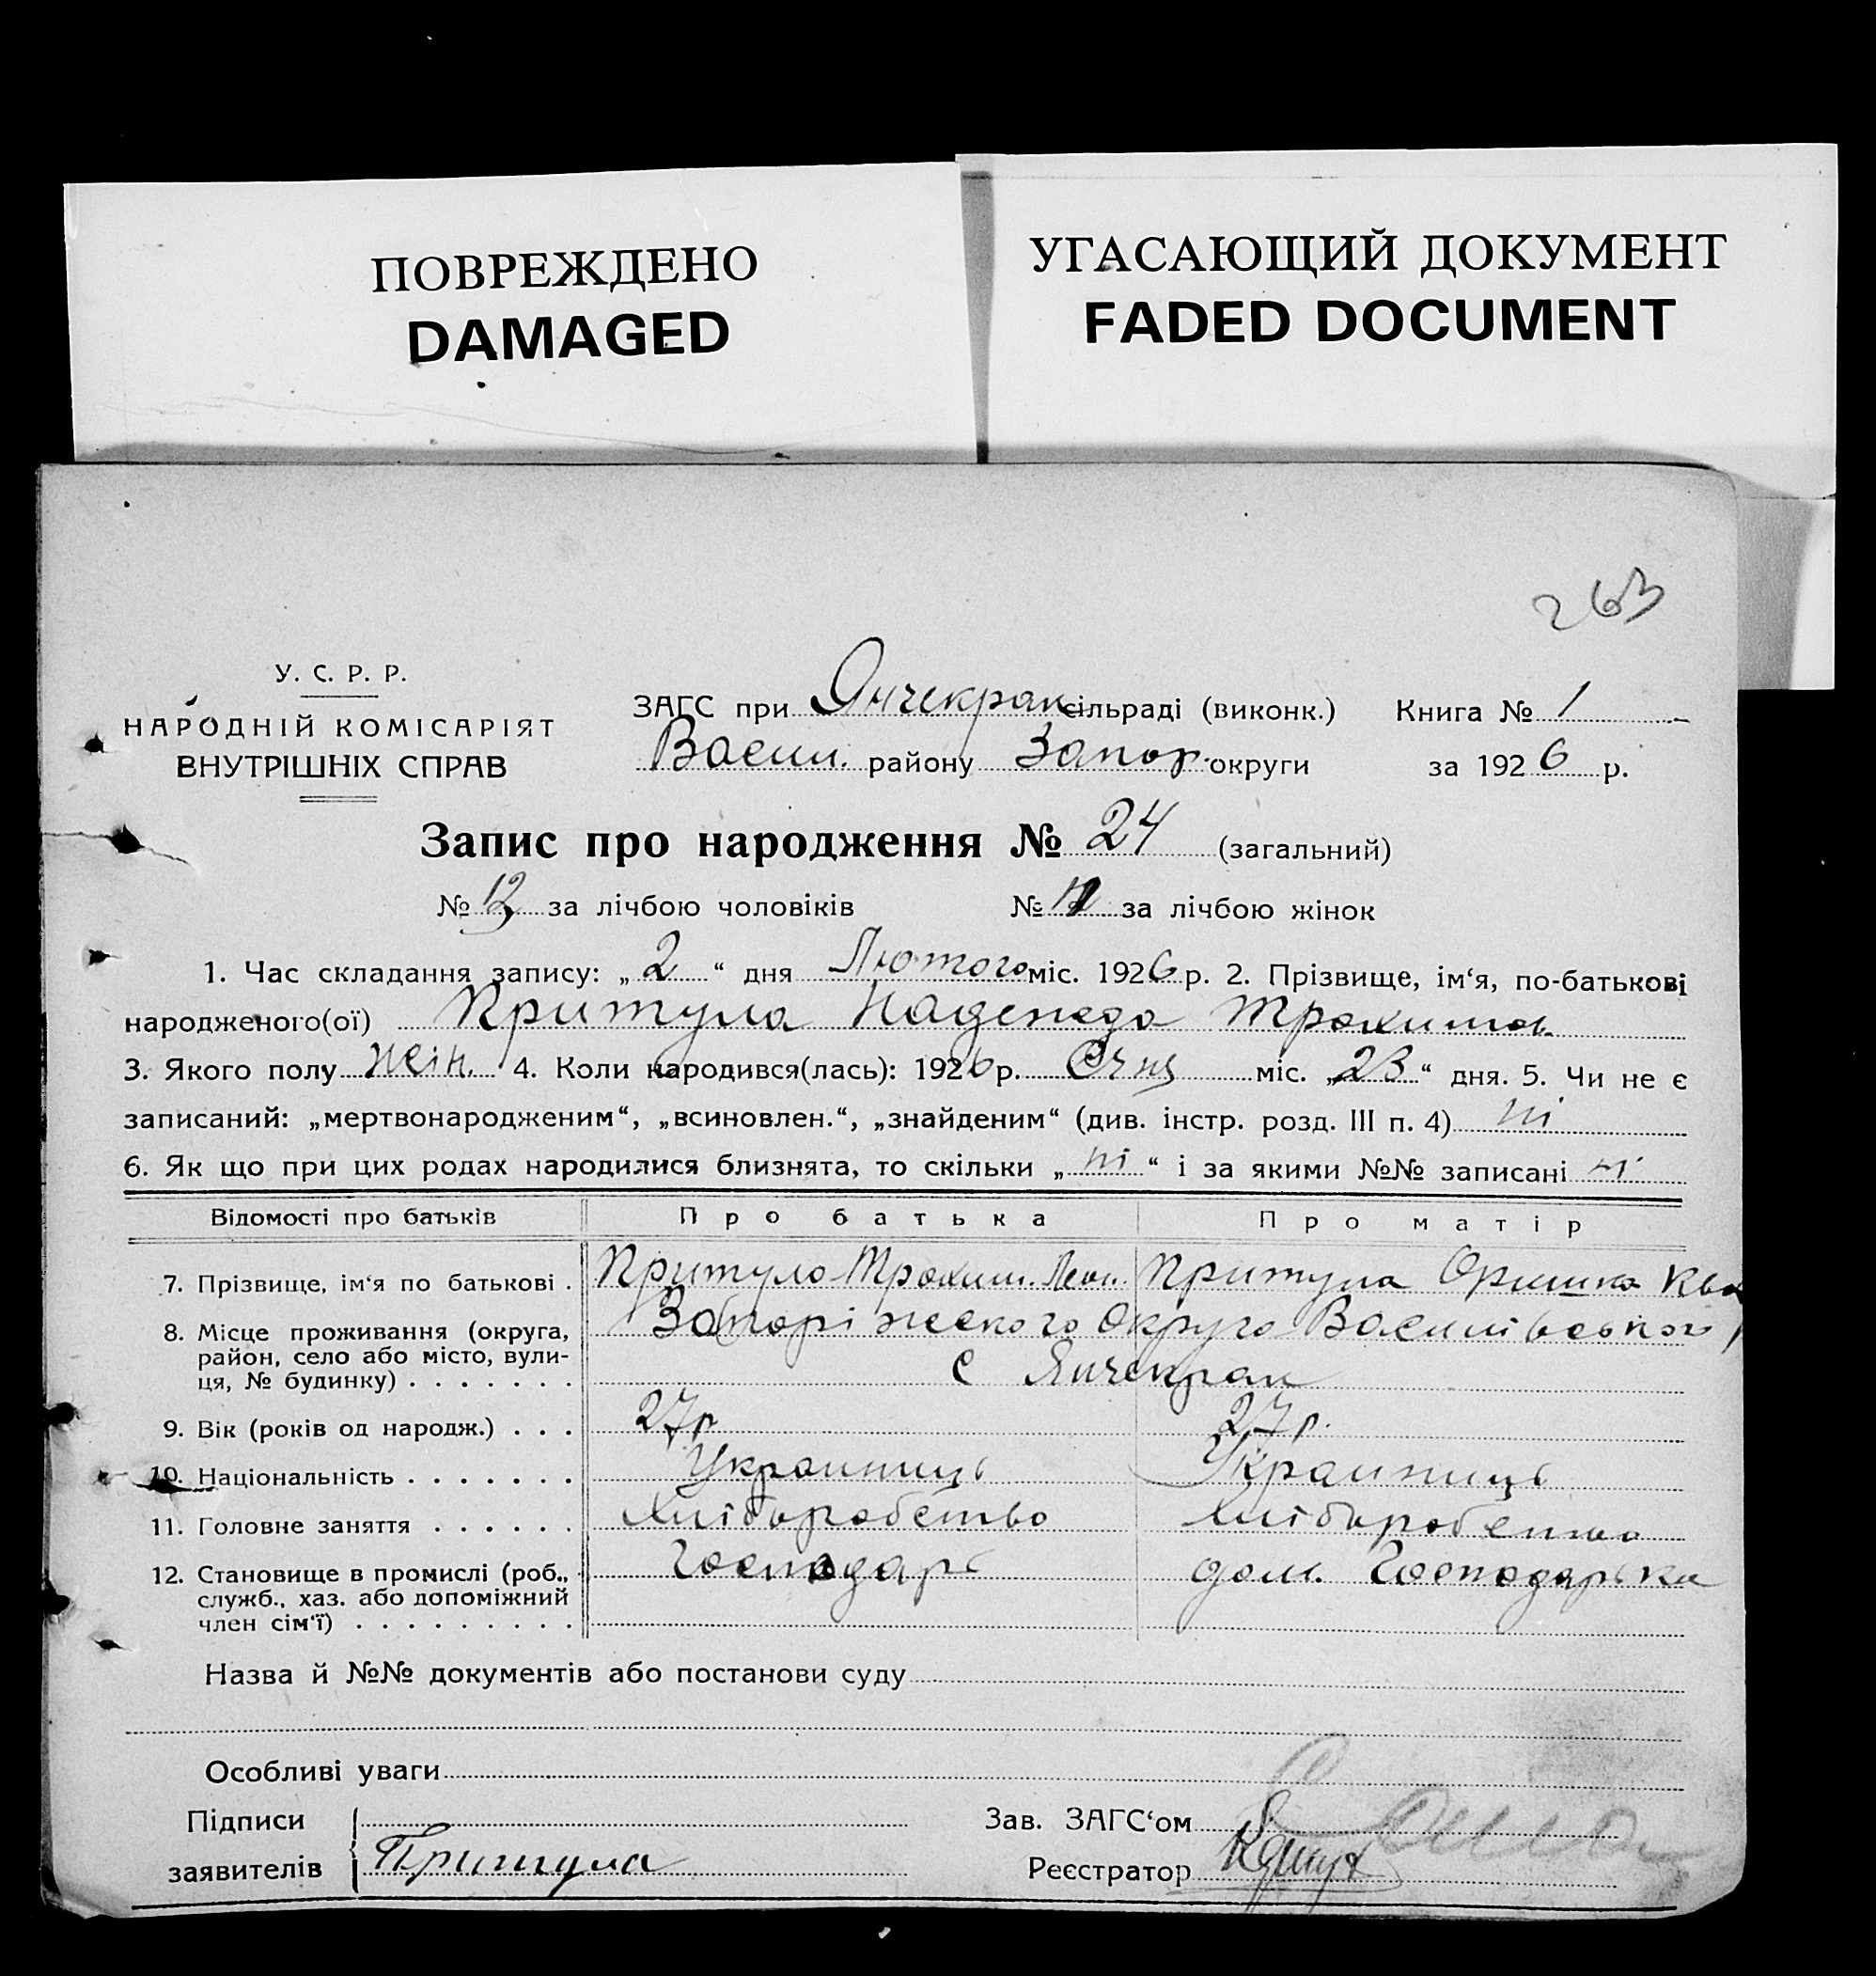 ПОВРЕЖДЕНО
DAMAGED
УГАСАЮЩИЙ ДОКУМЕНТ
FADED DOCUMENT
263
У. С. Р. Р.
НАРОДНІЙ КОМІСАРІЯТ
ВНУТРІШНІХ СПРАВ
ЗАГС при Янчекрак сільраді (виконк.) Книга № 1
Васил. району Запор. округи за 1926 р.
Запис про народження № 24 (загальний)
№ за лічбою чоловіків № за лічбою жінок
1. Час складання запису: „2“ дня Лютого міс. 1926 р. 2. Прізвище, ім‘я, по-батькові
народженого(ої) Притула Надежда Трохимов.
3. Якого полу жін. 4. Коли народився(лась): 1926 р. Січн міс. „23“ дня. 5. Чи не є
записаний: „мертвонародженим“, „всиновлен.“, „знайденим“ (див. інстр. розд. III п. 4) ні
6. Як що при цих родах народилися близнята, то скільки „ні“ і за якими №№ записані ні
Відомості про батьків Про батька Про матір
7. Прізвище, ім‘я по батькові . Притуло Трохим. Притула Оришка
8. Місце проживання (округа, район, село або місто, вулиця, № будинку) . . . . . . . Запоріжского Округо Василівського
с Янчекрак
9. Вік (років од народж.) . . . 27р 27р.
10. Національність . . . . . . . Украиниць Украиниць
11. Головне заняття . . . . . . Хлібиробство Хлібиробство
12. Становище в промислі (роб., служб., хаз. або допоміжний член сім‘ї) . . . . . . . . . Господарь дом. Господарька
Назва й №№ документів або постанови суду
Особливі уваги
Підписи
заявителів Притула
Зав. ЗАГС‘ом
Реєстратор